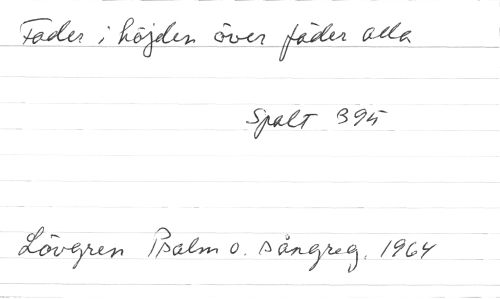 Fader i höjden över fäder alla
Spalt 395
Lövgren Psalm o. sångreg. 1964